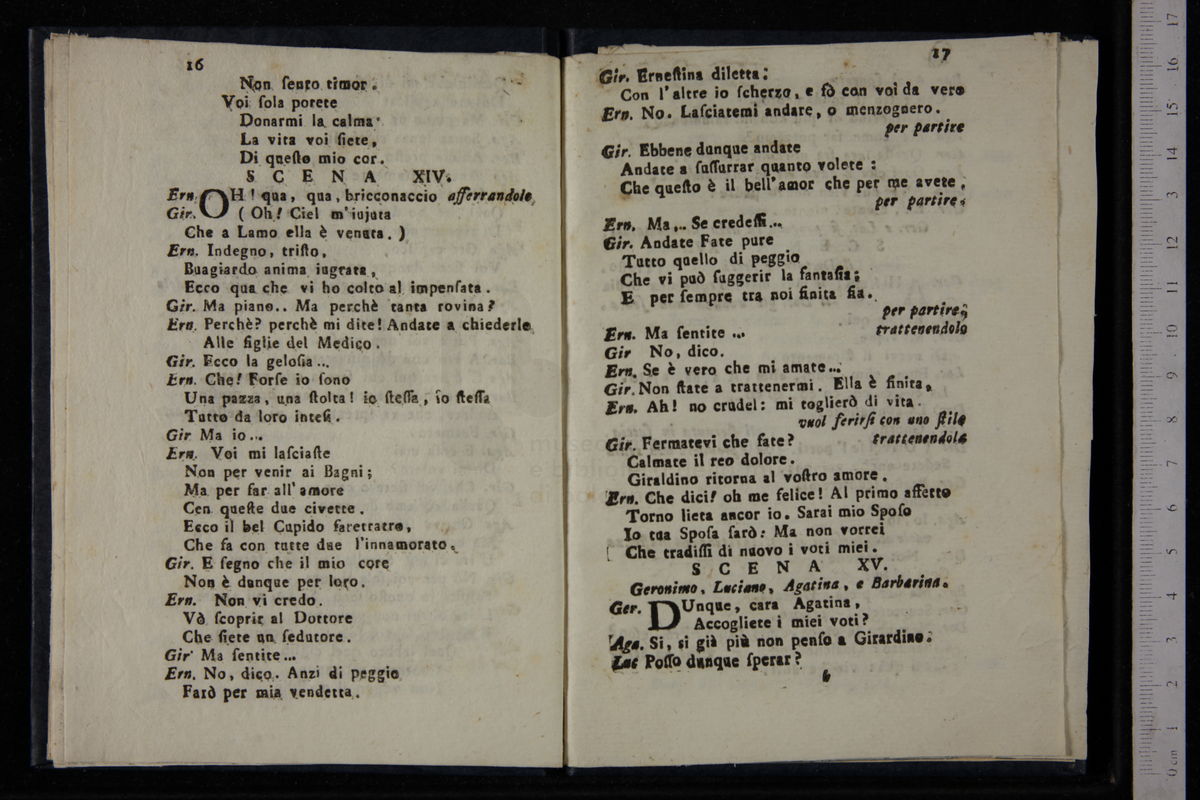 16
Non ſento timor.
Voi ſola potete
Donarmi la calma
La vita voi ſiete,
Di queſto mio cor.
S C E N A XIV.
Ern. OH! qua, qua, bricconaccio afferrandolo
Gir. ( Oh! Ciel m'iujuta
Che a Lamo ella è venuta. )
Ern. Indegno, triſto,
Buagiardo anima iugrata,
Ecco qua che vi ho colto al impenſata.
Gir. Ma piano.. Ma perchè tanta rovina?
Ern. Perchè? perchè mi dite! Andate a chiederle
Alle figlie del Medico.
Gir. Ecco la geloſia...
Ern. Che! Forſe io ſono
Una pazza, una ſtolta! io ſteſſa, io ſteſſa
Tutto da loro inteſi.
Gir Ma io...
Ern. Voi mi laſciaſte
Non per venir ai Bagni;
Ma per far all' amore
Cen queſte due civette.
Ecco il bel Cupido farettatro,
Che fa con tutte due l'innamorato.
Gir. E ſegno che il mio core
Non è dunque per loro.
Ern. Non vi credo.
Vò ſcoprir al Dottore
Che ſiete un ſedutore.
Gir' Ma ſentite...
Ern. No, dico. Anzi di peggio
Farò per mia vendetta.
17
Gir. Erneſtina diletta:
Con l'altre io ſcherzo, e fò con voi da vero
Ern. No. Laſciatemi andare, o menzognero.
per partire
Gir. Ebbene dunque andate
Andate a ſuſſurrar quanto volete :
Che queſto è il bell'amor che per me avete,
per partire.
Ern. Ma... Se credeſſi...
Gir. Andate Fate pure
Tutto quello di peggio
Che vi può ſuggerir la fantaſia;
E per ſempre tra noi finita ſia.
per partire;
Ern. Ma ſentite ... trattenendolo
Gir No, dico.
Ern. Se è vero che mi amate...
Gir. Non ſtate a trattenermi. Ella è finita,
Ern. Ah! no crudel: mi toglierò di vita.
vuol ferirſi con uno ſtilo
Gir. Fermatevi che fate? trattenendola
Calmate il reo dolore.
Giraldino ritorna al voſtro amore.
Ern. Che dici! oh me felice! Al primo affetto
Torno lieta ancor io. Sarai mio Spoſo
Io tua Spoſa farò: Ma non vorrei
Che tradiſſi di nuovo i voti miei.
S C E N A XV.
Geronimo, Luciano, Agatina, e Barbarina.
Ger. DUnque, cara Agatina,
Accogliete i miei voti?
Aga. Si, si già più non penſo a Girardino.
Luc Poſſo dunque ſperar?
b